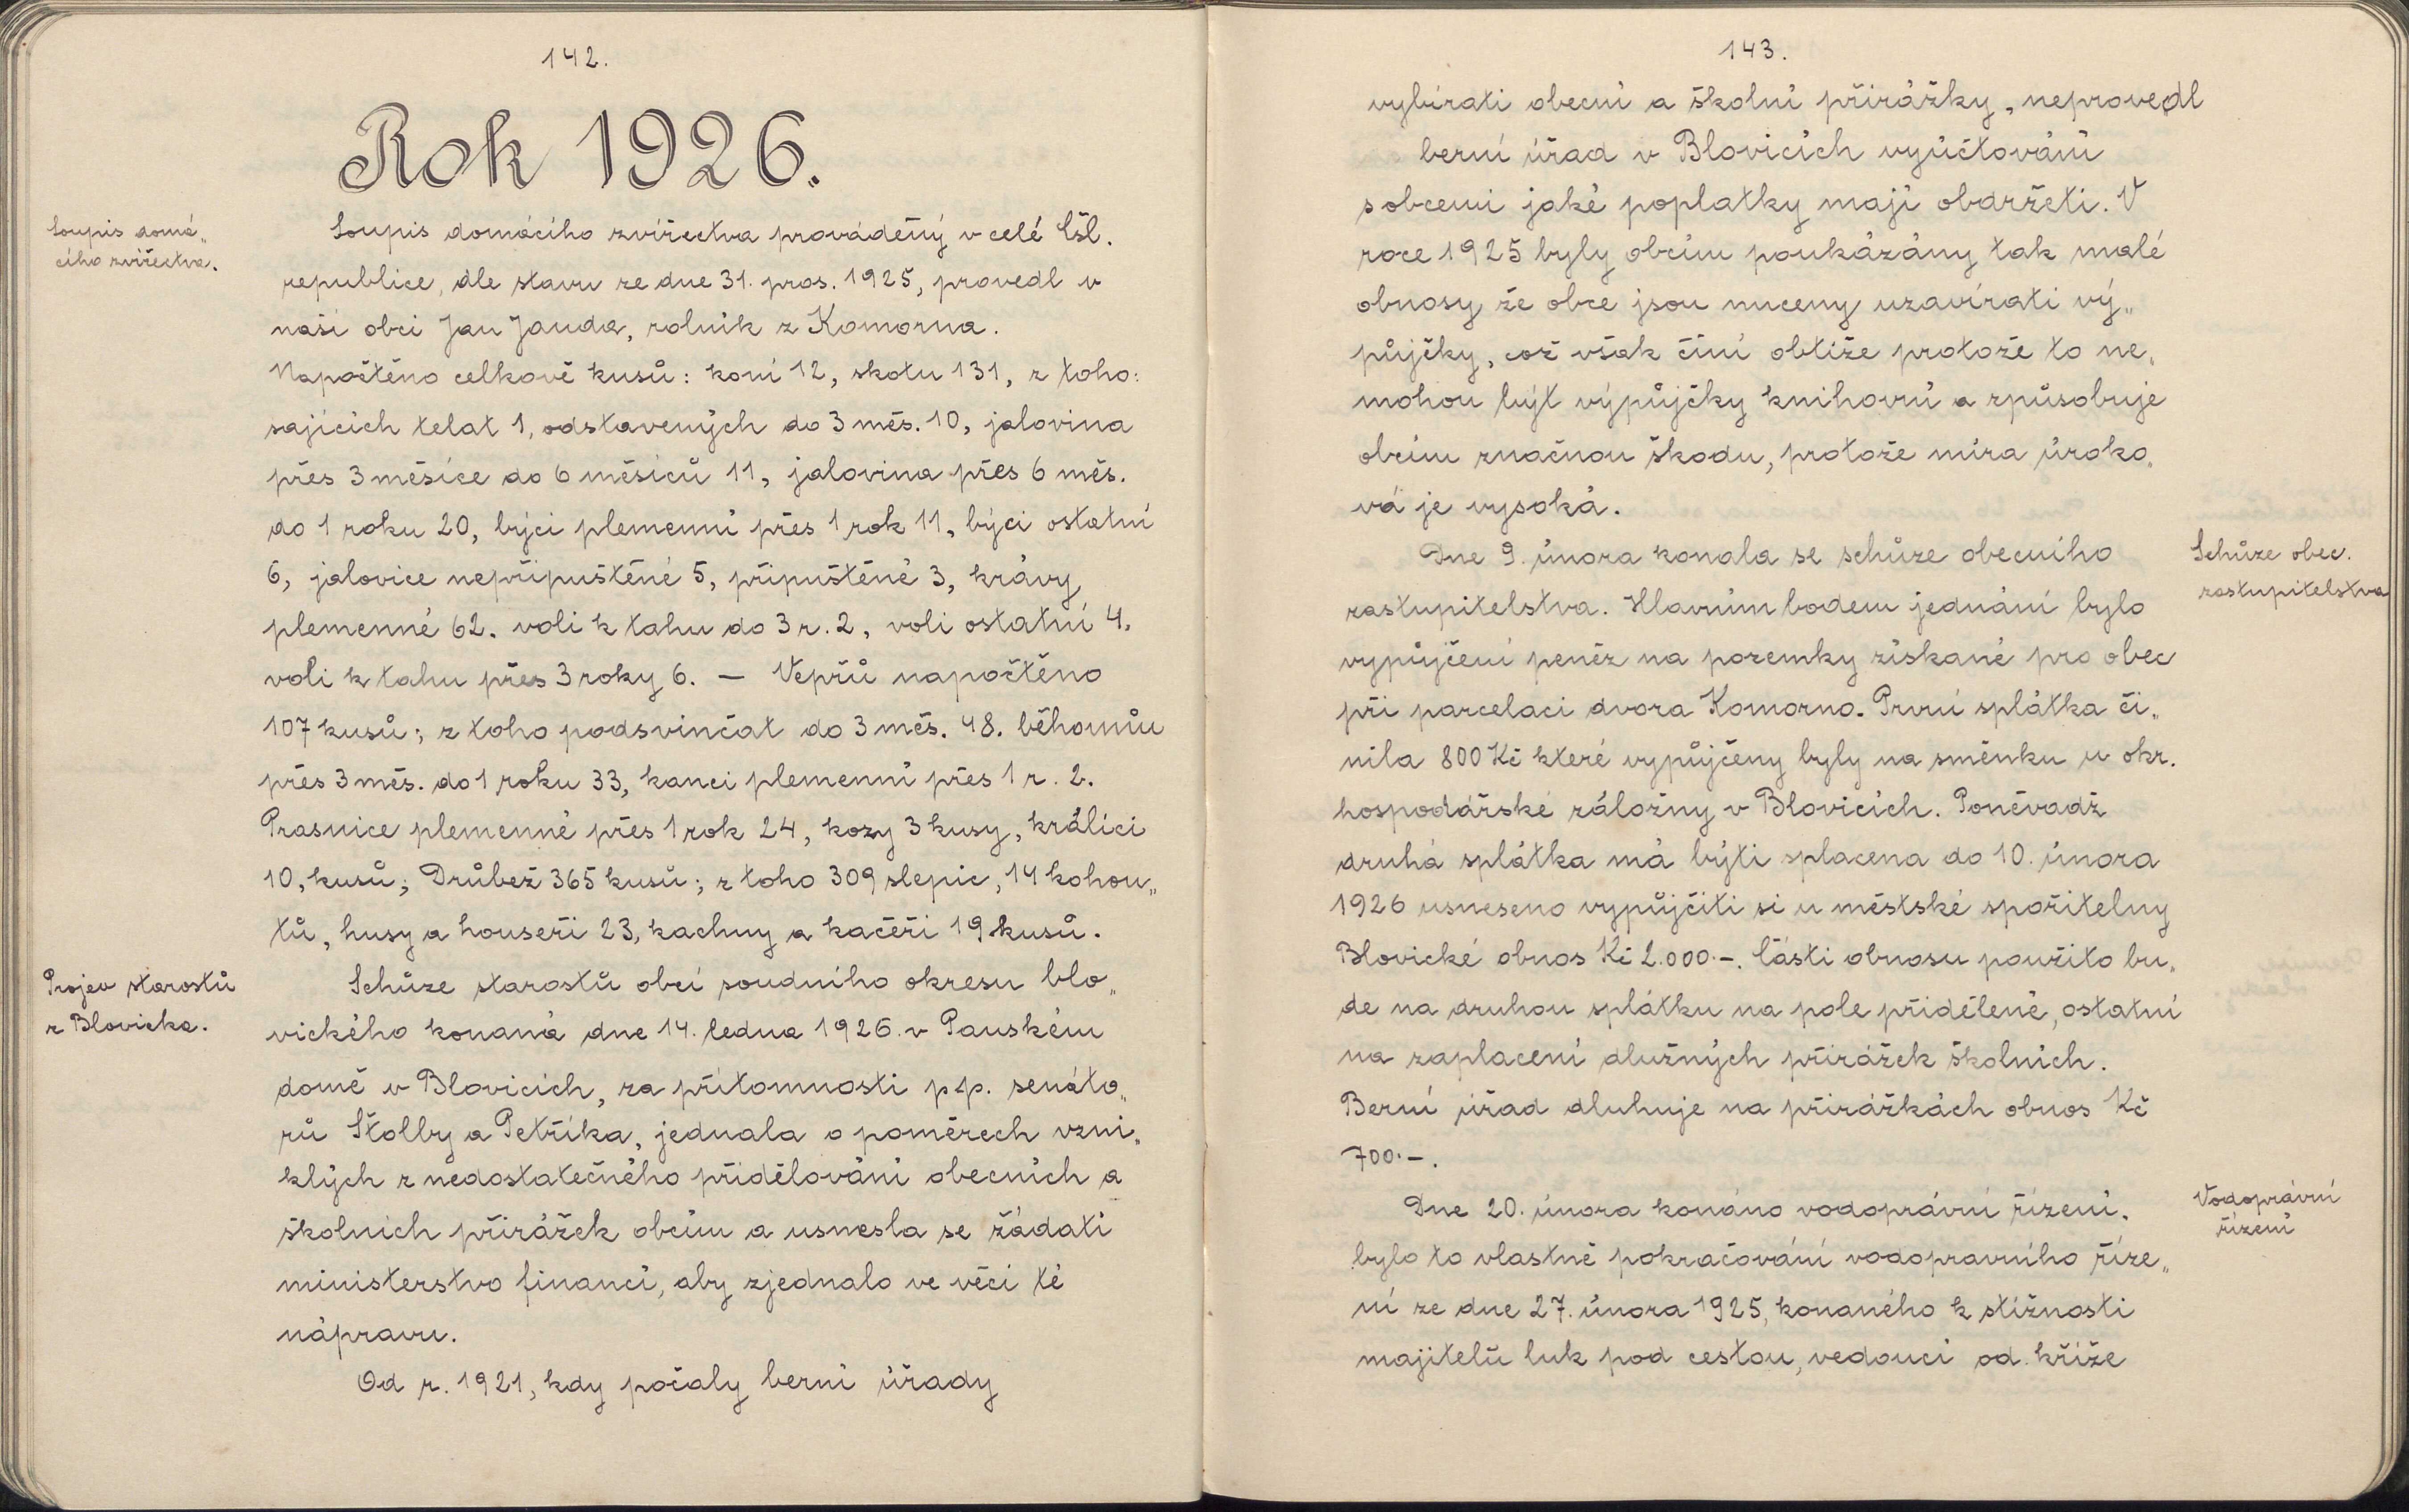 142.
Rok 1926.
Soupis domá„
cího zvířectva.
Soupis domácího zvířectva prováděný v celé Čsl.
republice, dle stavu ze dne 31. pros. 1925, provedl v
naší obci Jan Janda, rolník z Komorna.
Napočtěno celkově kusů: koní 12, skotu 131, z toho:
sajících telat 1, odstavených do 3 měs. 10, jalovina
přes 3 měsíce do 6 měsíců 11, jalovina přes 6 měs.
do 1 roku 20, býci plemenní přes 1 rok 11, býci ostatní
6, jalovice nepřipuštěné 5, připuštěné 3, krávy
plemenné 62. voli k tahu do 3 r. 2, voli ostatní 4,
voli k tahu přes 3 roky 6. — Vepřů napočtěno
107 kusů; z toho podsvinčat do 3 měs. 48. běhounů
přes 3 měs. do 1 roku 33, kanci plemenní přes 1 r. 2.
Prasnice plemenné přes 1 rok 24, kozy 3 kusy, králíci
10, kusů; Drůbež 365 kusů; z toho 309 slepic, 14 kohou„
tů, husy a houseři 23, kachny a kačeři 19 kusů.
Projev starostů
z Blovicka.
Schůze starostů obcí soudního okresu blo„
vického konaná dne 14. ledna 1926. v Panském
domě v Blovicích, za přítomnosti pp. senáto„
rů Štolby a Petříka, jednala o poměrech vzni„
klých z nedostatečného přidělování obecních a
školních přirážek obcím a usnesla se žádati
ministerstvo financí, aby zjednalo ve věci té
nápravu.
Od r. 1921, kdy počaly berní úřady
143.
vybírati obecní a školní přirážky, neprovedl
berní úřad v Blovicích vyúčtování
s obcemi jaké poplatky mají obdržeti. V
roce 1925 byly obcím poukázány tak malé
obnosy že obce jsou nuceny uzavírati vý„
půjčky, což však činí obtíže protože to ne„
mohou být výpůjčky knihovní a způsobuje
obcím značnou škodu, protože míra úroko„
vá je vysoká.
Dne 9. února konala se schůze obecního
zastupitelstva. Hlavním bodem jednání bylo
vypůjčení peněz na pozemky získané pro obec
při parcelaci dvora Komorno. První splátka či„
nila 800 Kč které vypůjčeny byly na směnku u okr.
hospodářské záložny v Blovicích. Poněvadž
druhá splátka má býti splacena do 10. února
1926 usneseno vypůjčiti si u městské spořitelny
Blovické obnos Kč 2.000.-. Části obnosu použito bu„
de na druhou splátku na pole přidělené, ostatní
na zaplacení dlužných přirážek školních.
Berní úřad dluhuje na přirážkách obnos Kč
700.-.
Schůze obec.
zastupitelstva
Dne 20. února konáno vodoprávní řízení,
bylo to vlastně pokračování vodopravního říze„
ní ze dne 27. února 1925, konaného k stížnosti
majitelů luk pod cestou, vedoucí od kříže
Vodoprávní
řízení